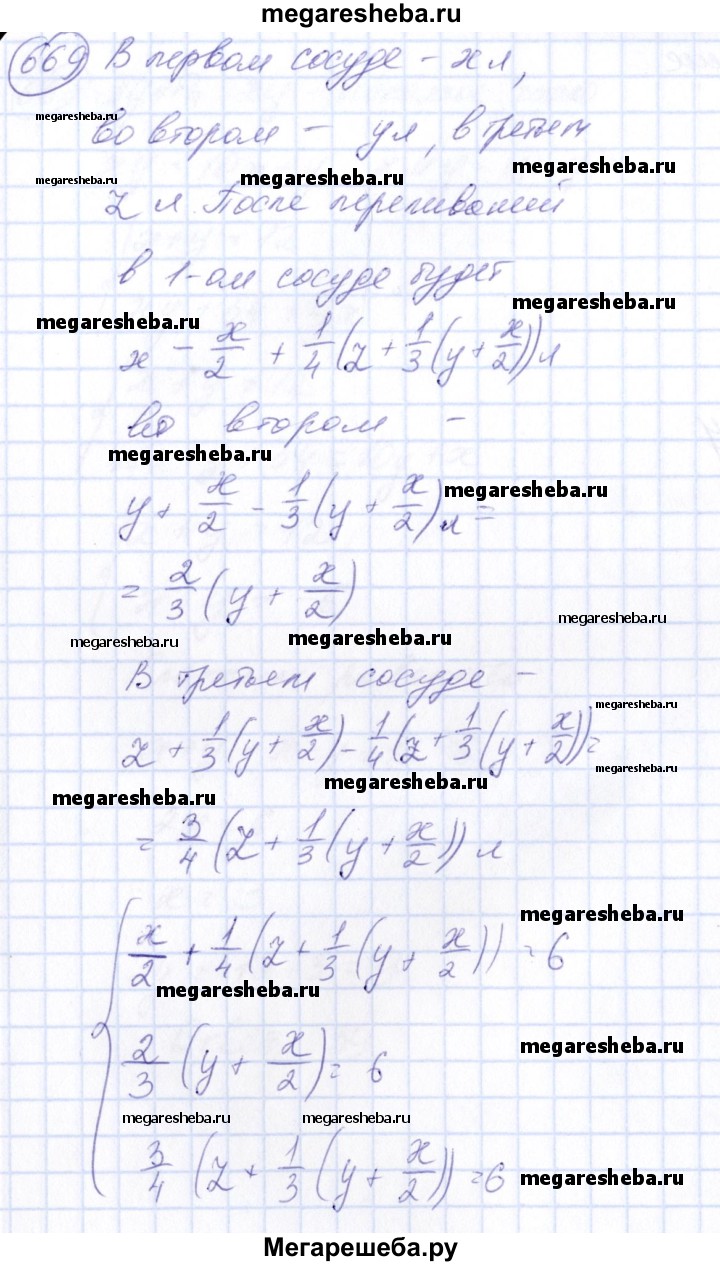 megaresheba.ru
669 В первом сосуде - x л,
megaresheba.ru
во втором - y л, в третьем
megaresheba.ru
megaresheba.ru
megaresheba.ru
z л. После переливаний
в 1-ом сосуде будет
megaresheba.ru
megaresheba.ru
x - x/2 + 1/4 (z + 1/3 (y + x/2)) л
во втором -
megaresheba.ru
y + x/2 - 1/3 (y + x/2) л =
megaresheba.ru
= 2/3 (y + x/2)
megaresheba.ru
megaresheba.ru
megaresheba.ru
В третьем сосуде -
megaresheba.ru
z + 1/3 (y + x/2) - 1/4 (z + 1/3 (y + x/2)) =
megaresheba.ru
megaresheba.ru
megaresheba.ru
= 3/4 (z + 1/3 (y + x/2)) л
megaresheba.ru
{ x/2 + 1/4 (z + 1/3 (y + x/2)) = 6
megaresheba.ru
megaresheba.ru
2/3 (y + x/2) = 6
megaresheba.ru
megaresheba.ru
3/4 (z + 1/3 (y + x/2)) = 6
megaresheba.ru
Мегарешеба.ру